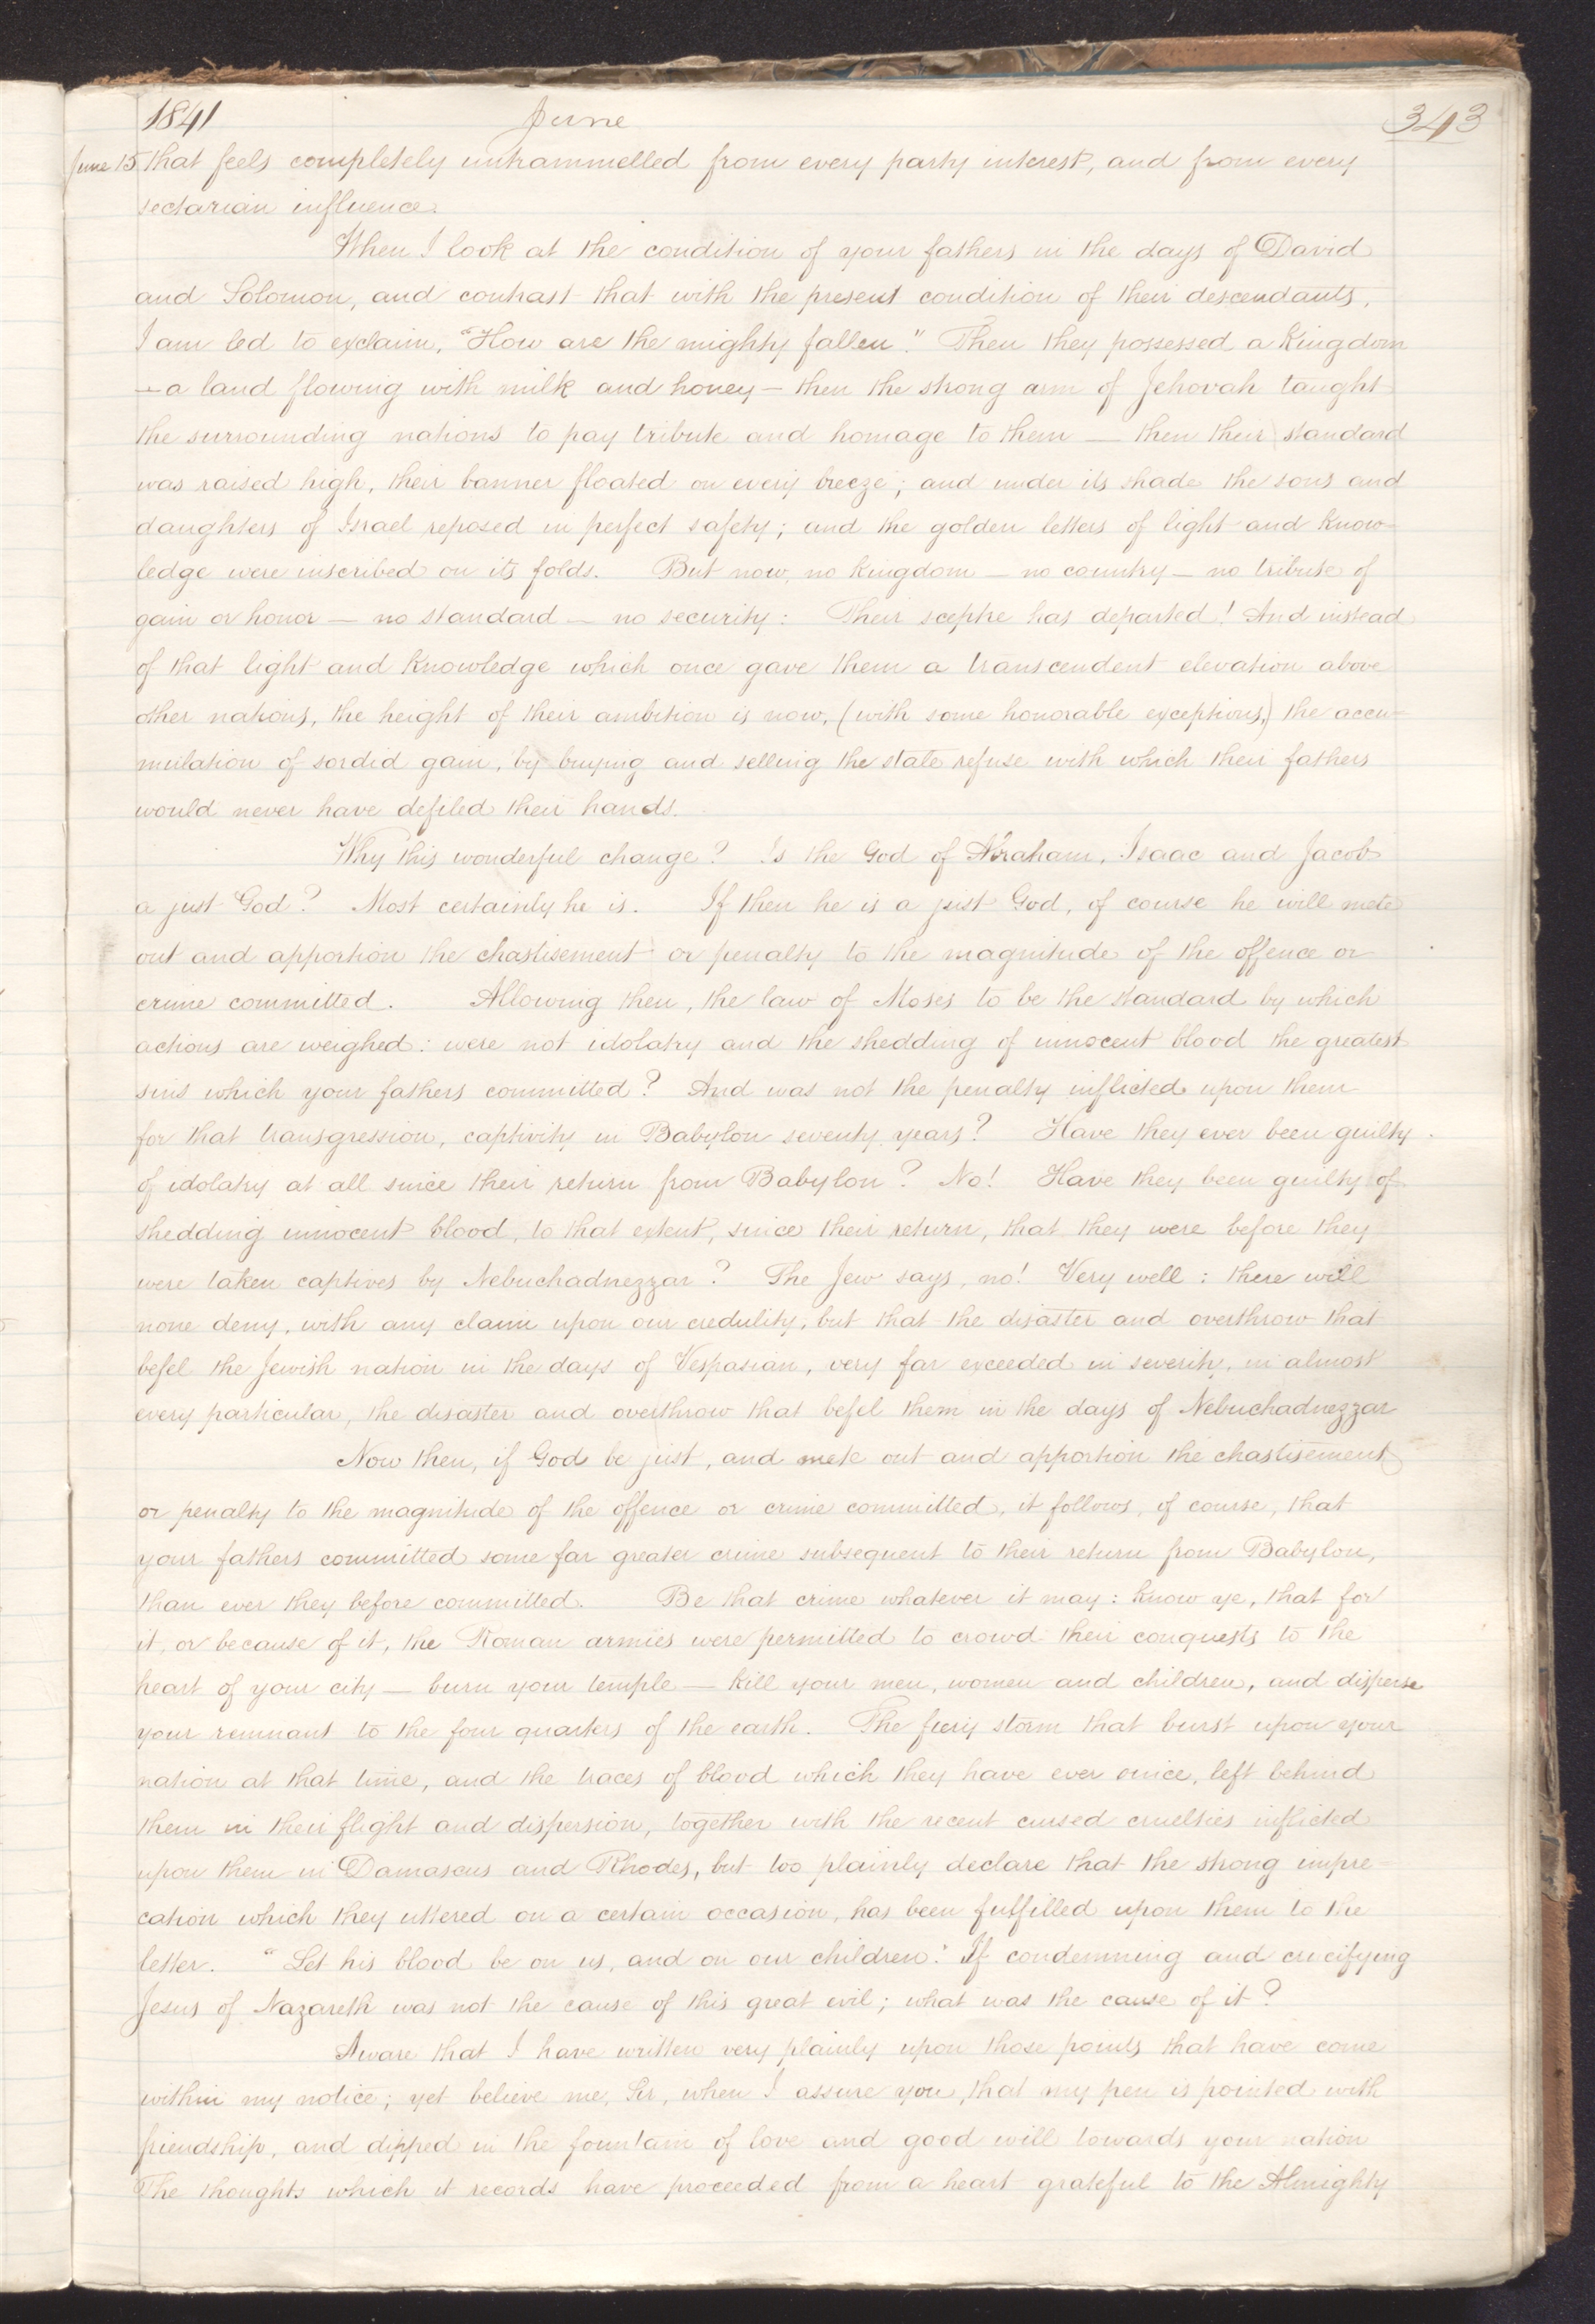 1841 June 343
June 15 that feels completely untrammelled from every party interest, and from every
sectarian influence.
When I look at the condition of your fathers in the days of David
and Solomon, and contrast that with the present condition of their descendants,
I am led to exclaim, "How are the mighty fallen." Then they possessed a kingdom
— a land flowing with milk and honey — then the strong arm of Jehovah taught
the surrounding nations to pay tribute and homage to them — then their standard
was raised high, their banner floated on every breeze; and under its shade the sons and
daughters of Israel reposed in perfect safety; and the golden letters of light and know-
ledge were inscribed on its folds. But now, no kingdom — no country — no tribute of
gain or honor — no standard — no security: Their sceptre has departed! And instead
of that light and knowledge which once gave them a transcendent elevation above
other nations, the height of their ambition is now, (with some honorable exceptions,) the accu-
mulation of sordid gain, by buying and selling the stale refuse with which their fathers
would never have defiled their hands.
Why this wonderful change? Is the God of Abraham, Isaac and Jacob
a just God? Most certainly he is. If then he is a just God, of course he will mete
out and apportion the chastisement or penalty to the magnitude of the offence or
crime committed. Allowing then, the law of Moses to be the standard by which
actions are weighed: were not idolatry and the shedding of innocent blood the greatest
sins which your fathers committed? And was not the penalty inflicted upon them
for that transgression, captivity in Babylon seventy years? Have they ever been guilty
of idolatry at all since their return from Babylon? No! Have they been guilty of
shedding innocent blood, to that extent, since their return, that they were before they
were taken captives by Nebuchadnezzar? The Jew says, no! Very well: there will
none deny, with any claim upon our credulity, but that the disaster and overthrow that
befel the Jewish nation in the days of Vespasian, very far exceeded in severity, in almost
every particular, the disaster and overthrow that befel them in the days of Nebuchadnezzar
Now then, if God be just, and mete out and apportion the chastisement
or penalty to the magnitude of the offence or crime committed, it follows, of course, that
your fathers committed some far greater crime subsequent to their return from Babylon,
than ever they before committed. Be that crime whatever it may: know ye, that for
it, or because of it, the Roman armies were permitted to crowd their conquests to the
heart of your city — burn your temple — kill your men, women and children, and disperse
your remnant to the four quarters of the earth. The fiery storm that burst upon your
nation at that time, and the traces of blood which they have ever since, left behind
them in their flight and dispersion, together with the recent cursed cruelties inflicted
upon them in Damascus and Rhodes, but too plainly declare that the strong impre-
cation which they uttered on a certain occasion, has been fulfilled upon them to the
letter. "Let his blood be on us, and on our children." If condemning and crucifying
Jesus of Nazareth was not the cause of this great evil; what was the cause of it?
Aware that I have written very plainly upon those points that have come
within my notice; yet believe me, Sir, when I assure you, that my pen is pointed with
friendship, and dipped in the fountain of love and good will towards your nation
The thoughts which it records have proceeded from a heart grateful to the Almighty